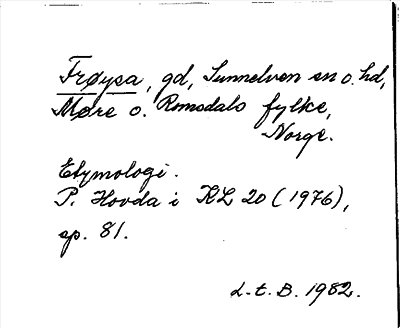 Frøysa, gd, Sunnelven sn o. hd,
Møre o. Romsdals fylke,
Norge.
Etymologi.
P. Hovda i KL 20 (1976),
sp. 81.
L.t.B. 1982.